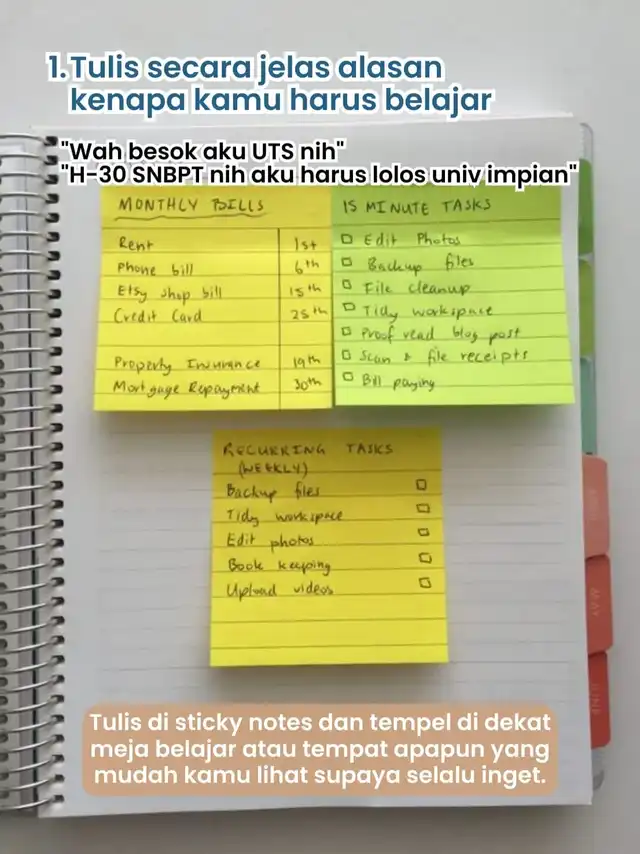 1. Tulis secara jelas alasan
kenapa kamu harus belajar
"Wah besok aku UTS nih"
"H-30 SNBPT nih aku harus lolos univ impian"
MONTHLY BILLS
Rent 1st
Phone bill 6th
Etsy shop bill 15th
Credit Card 25th
Property Insurance 19th
Mortgage Repayment 30th
15 MINUTE TASKS
Edit Photos
Backup files
File cleanup
Tidy workspace
Proof read blog post
Scan & file receipts
Bill paying
RECURRING TASKS
(WEEKLY)
Backup files
Tidy workspace
Edit photos
Book keeping
Upload videos
MAY
JUNE
Tulis di sticky notes dan tempel di dekat
meja belajar atau tempat apapun yang
mudah kamu lihat supaya selalu inget.